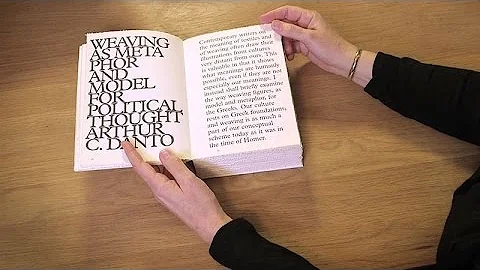 WEAVING
AS META
PHOR
AND
MODEL
FOR
POLITICAL
THOUGHT
ARTHUR
C. DANTO
Contemporary writers on
the meaning of textiles and
of weaving often draw their
illustrations from cultures
very distant from ours. This
is valuable in that it shows
what meanings are humanly
possible, even if they are not
especially our meanings. I
instead shall briefly examine
the way weaving figures, as
model and metaphor, for
the Greeks. Our culture
rests on Greek foundations,
and weaving is as much a
part of our conceptual
scheme today as it was in
the time of Homer.